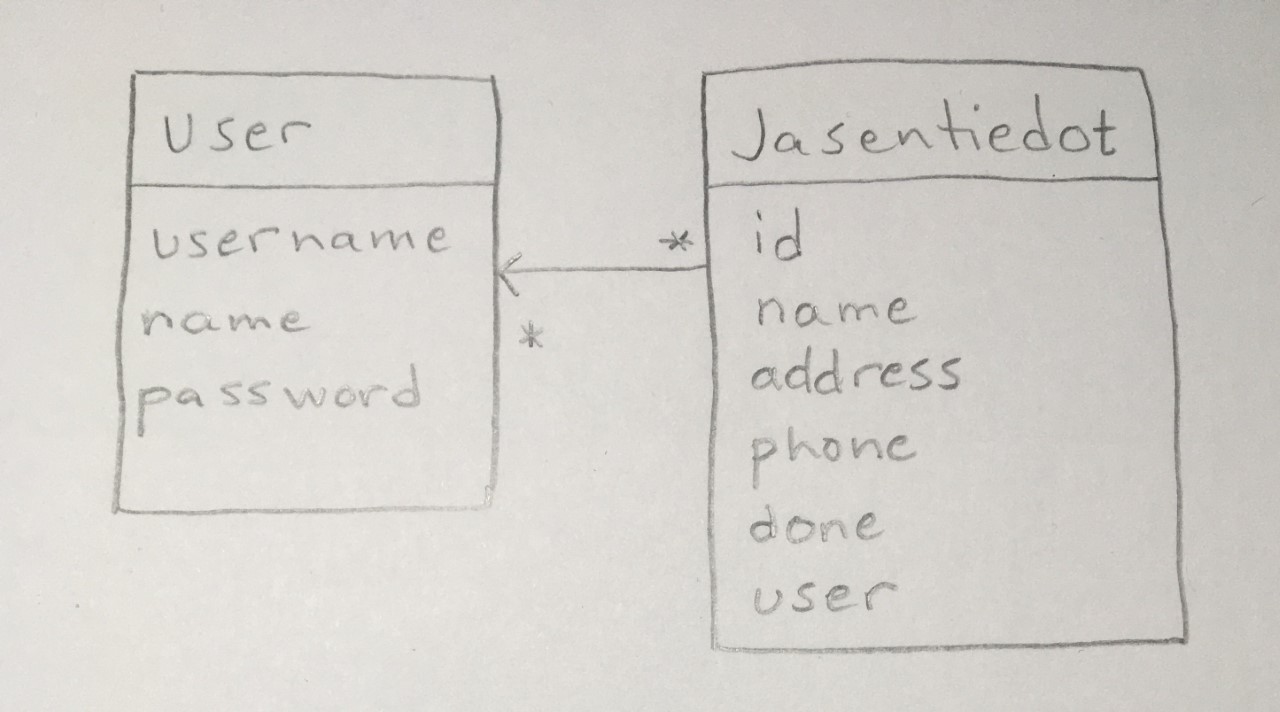 User
username
name
password
*
*
Jasentiedot
id
name
address
phone
done
user